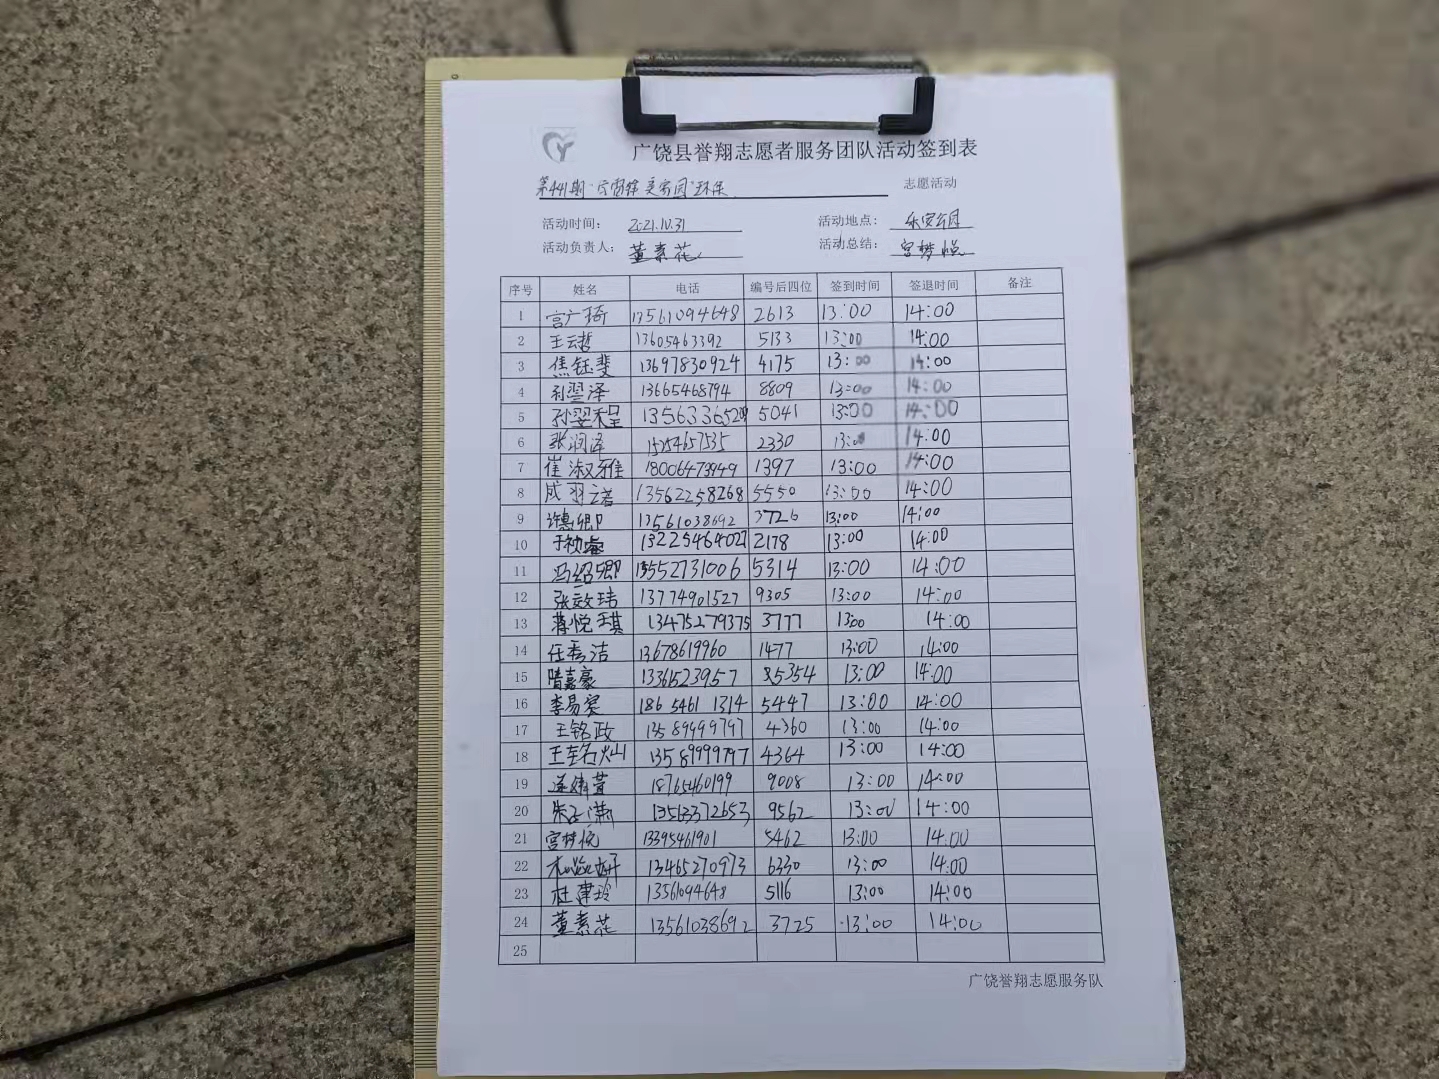 广饶县誉翔志愿者服务团队活动签到表
第441期 环保 志愿活动
活动时间： 2021.10.31 活动地点： 乐安公园
活动负责人： 董素花 活动总结： 宫梦悦
序号 姓名 电话 编号后四位 签到时间 签退时间 备注
1 宫广琦 13561094648 2613 13:00 14:00
2 王云哲 13605463392 5133 13:00 14:00
3 焦钰斐 13697830924 4175 13:00 14:00
4 孙翌泽 13665468794 8809 13:00 14:00
5 孙翌程 5041 13:00 14:00
6 张润泽 15154657535 2330 13:00 14:00
7 崔淑雅 18006473949 1397 13:00 14:00
8 成羽诺 13562258268 5550 13:00 14:00
9 13561038692 3726 13:00 14:00
10 13225464027 2178 13:00 14:00
11 冯绍卿 13552731006 5314 13:00 14:00
12 张效玮 13774901527 9305 13:00 14:00
13 蒋悦琪 13475279375 3777 13:00 14:00
14 任秀洁 13678619960 1477 13:00 14:00
15 隋嘉豪 13361523957 5354 13:00 14:00
16 李易宸 186 5461 1314 5447 13:00 14:00
17 王铭政 13589999797 4360 13:00 14:00
18 13589999797 4364 13:00 14:00
19 18765460199 9008 13:00 14:00
20 朱子潇 13563372653 9562 13:00 14:00
21 宫梦悦 13395461901 5462 13:00 14:00
22 13465270973 6330 13:00 14:00
23 杜建玲 13561094648 5116 13:00 14:00
24 董素花 13561038692 3725 13:00 14:00
25
广饶誉翔志愿服务队